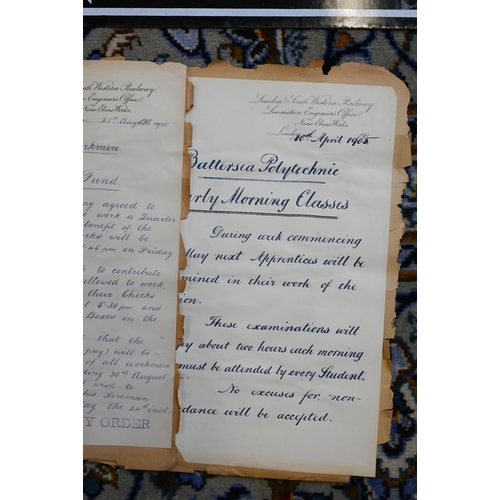 South Western Railway,
Engineers Office,
Nine Elms Works.
21st Augst 1905
rkmen.
Fund.
ng agreed to
work a Quarter
benefit of the
rks will be
45 pm on Friday
to contribute
allowed to work
their Checks
t 5-30 pm and
Boxes on the
that the
pay) will be
of all workmen
ding 30th August,
wish to
his Foreman
ay the 24th inst.
Y ORDER
London & South Western Railway,
Locomotive Engineers Office,
Nine Elms Works.
London 10th April 1905
Battersea Polytechnic
rly Morning Classes
During week commencing
May next Apprentices will be
mined in their work of the
ion.
These examinations will
py about two hours each morning
must be attended by every Student.
No excuses for non-
dance will be accepted.